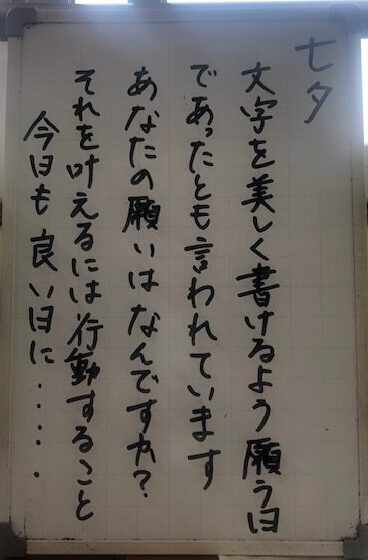 七夕
文字を美しく書けるよう願う日
であったとも言われています
あなたの願いはなんですか?
それを叶えるには行動すること
今日も良い日に・・・・・